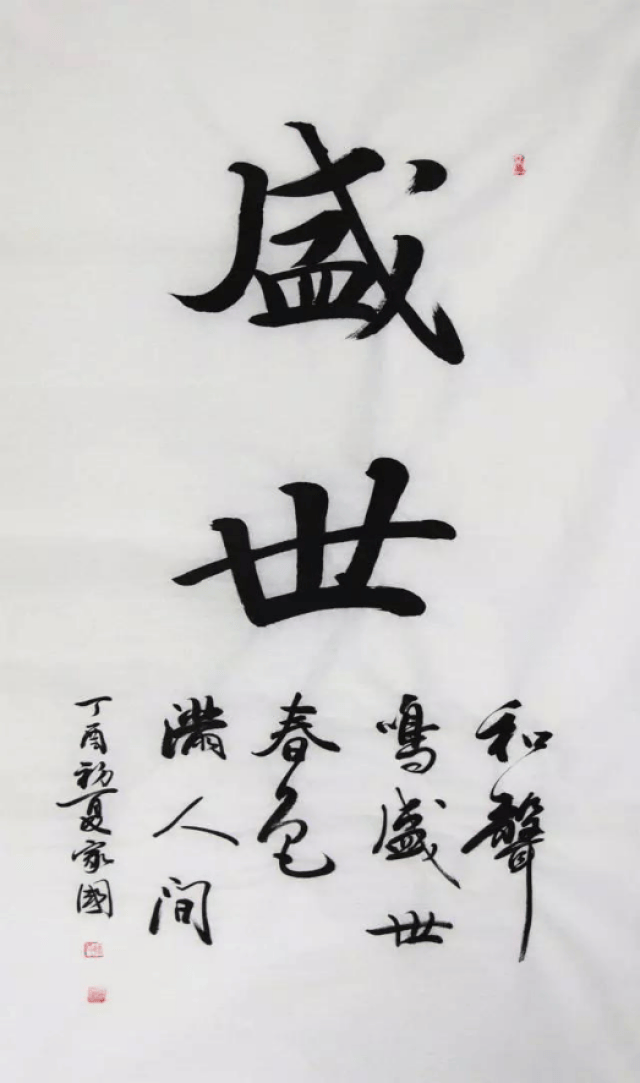 盛世
和聲
鳴盛世
春色
滿人间
丁酉初夏家國